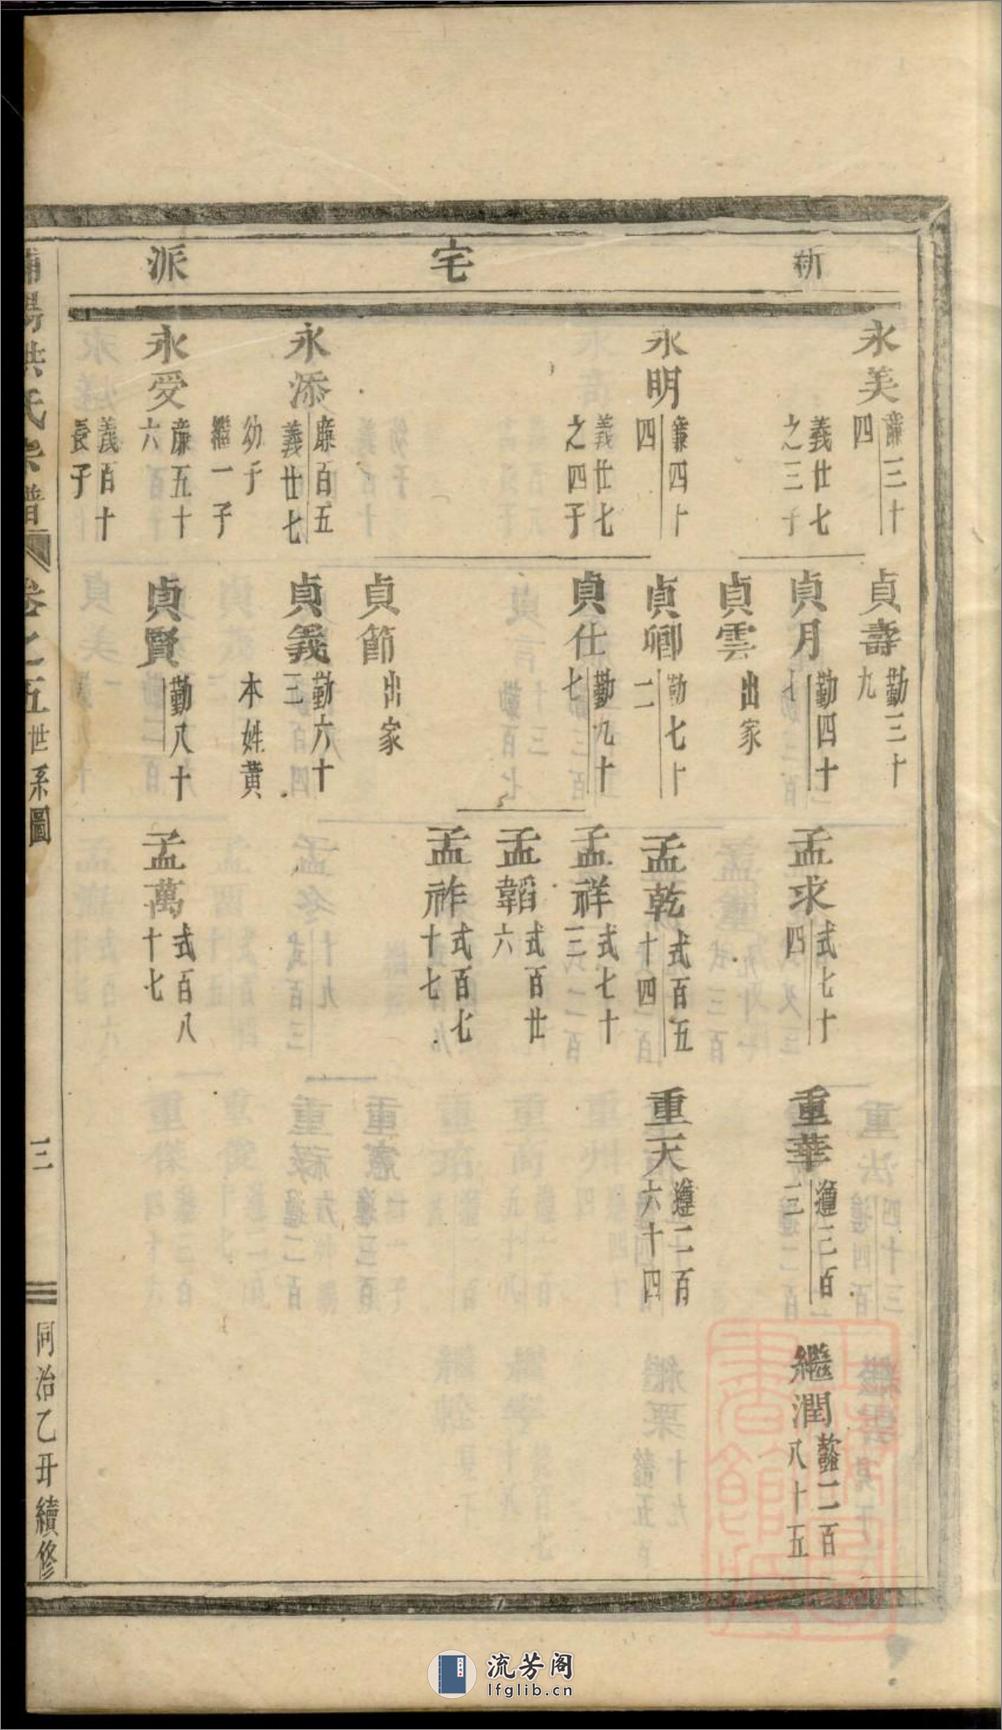 新宅派
永美
廉三十
四
義廿七
之三子
永明
廉四十
四
義廿七
之四子
永添
廉百五
義廿七
幼子
繼一子
永受
廉五十
六
義百十
長子
貞壽
勤三十
九
貞月
勤四十
七
貞雲
出家
貞卿
勤七十
二
貞仕
勤九十
七
貞節
出家
貞義
勤六十
三
本姓黃
貞賢
勤八十
孟求
式七十
四
孟乾
式百五
十四
孟祥
式七十
三
孟韜
式百廿
六
孟祚
式百七
十七
孟萬
式百八
十七
重華
遵三百
三
重天
遵二百
六十四
繼潤
懿二百
八十五
洪氏宗譜
卷之五
世系圖
三
同治乙丑續修
流芳阁
lfglib.cn